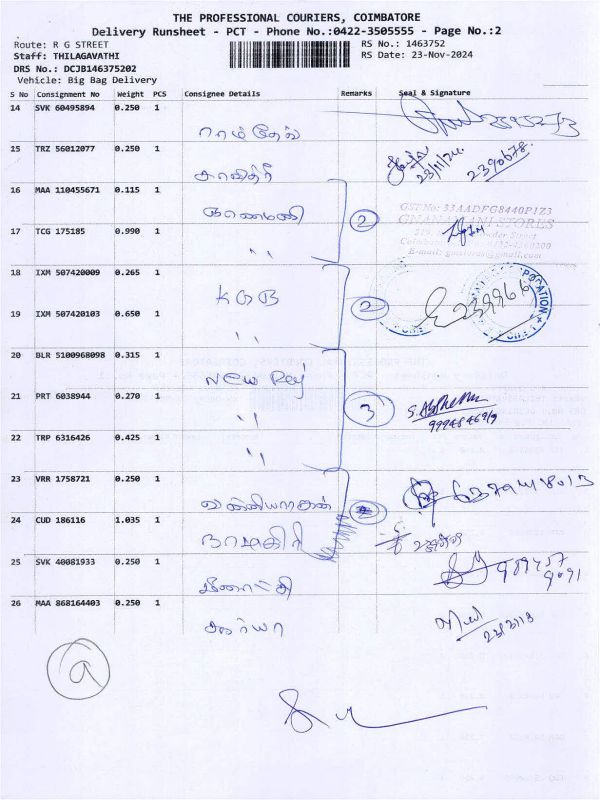 THE PROFESSIONAL COURIERS, COIMBATORE
Delivery Runsheet - PCT - Phone No.:0422-3505555 - Page No.:2
Route: R G STREET
RS No.: 1463752
Staff: THILAGAVATHI
RS Date: 23-Nov-2024
DRS No.: DCJB146375202
Vehicle: Big Bag Delivery
S No Consignment No Weight PCS Consignee Details Remarks Seal & Signature
14 SVK 60495894 0.250 1
ராம்தேவ்
15 TRZ 56012077 0.250 1
சாவித்ரி 23/11/24 2390678
16 MAA 110455671 0.115 1
ஞானமணி 2
GST No: 33AADFG8440P1Z3
GNANAMANI STORES
17 TCG 175185 0.990 1
" "
18 IXM 507420009 0.265 1
KGB 2
19 IXM 507420103 0.650 1
" "
20 BLR 5100968098 0.315 1
New Raj
21 PRT 6038944 0.270 1
" " 3
22 TRP 6316426 0.425 1
" "
23 VRR 1758721 0.250 1
24 CUD 186116 1.035 1
25 SVK 40081933 0.250 1
மீனாட்சி
26 MAA 868164403 0.250 1
சூர்யா
a